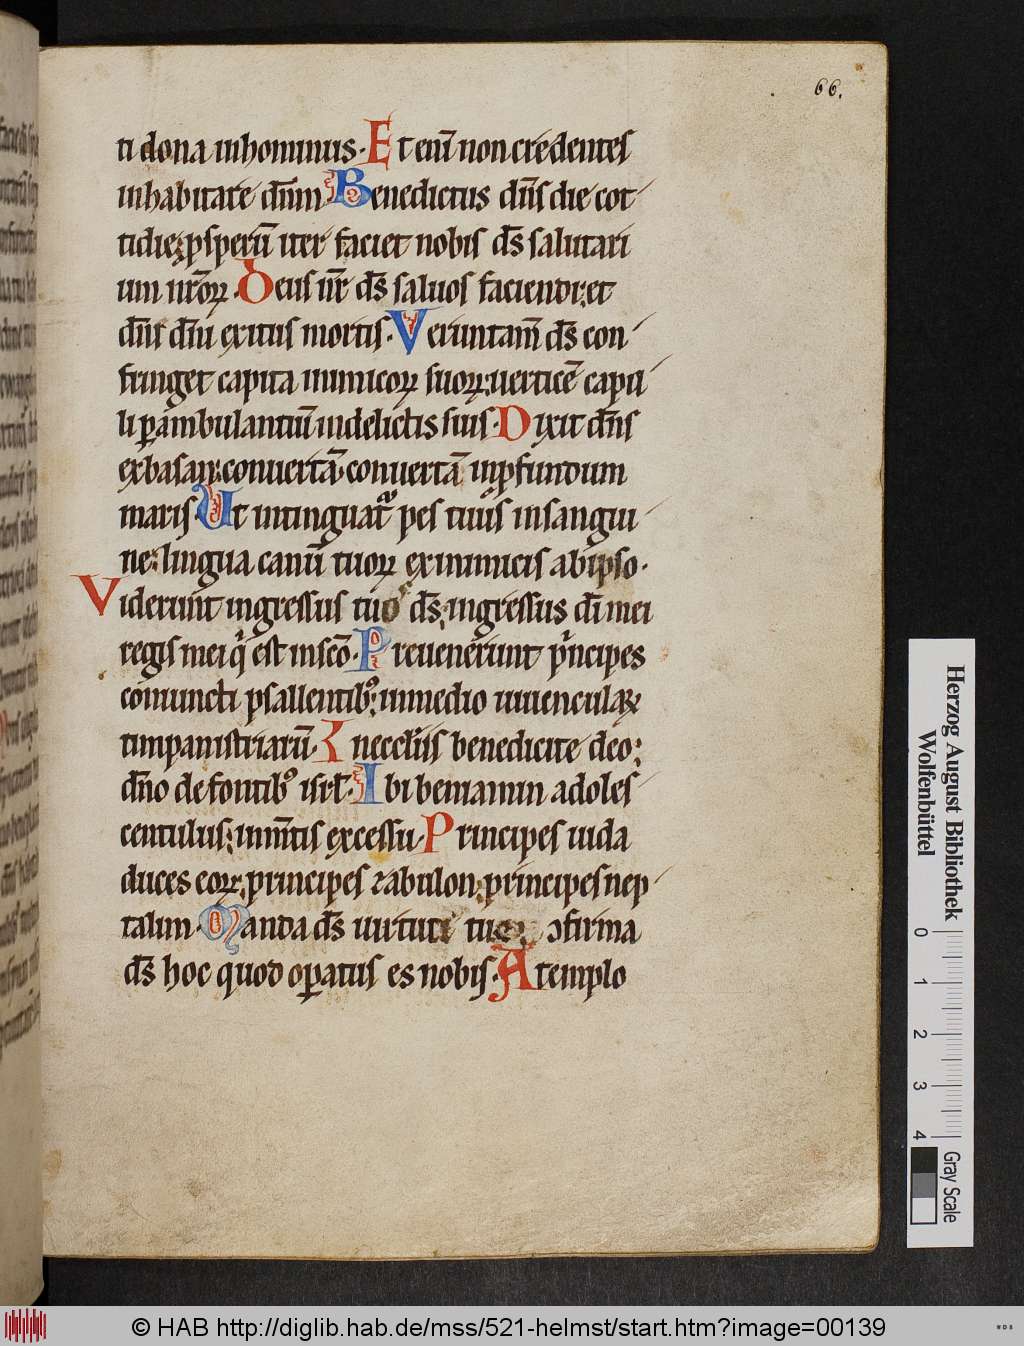 66.
ti dona in hominus. Et eni̅ non credentes
inhabitare dn̅m Benedictus dn̅s die cot
tidie; ꝓsperu̅ iter faciet nobis ds̅ salutari
um nr̅oꝝ. Deus nr̅ ds̅ saluos faciendi; et
dn̅i dn̅i exitus mortis. Veruntam̅ ds̅ con
fringet capita inimicoꝝ suoꝝ; uertice̅ capil
li ꝑambulantiu̅ indelictis suis. Dixit dn̅s
exbasan; conuerta̅. conuerta̅ inꝓfundum
maris. Ut intinguat᷑ pes tuus insangui
ne; lingua canu̅ tuoꝝ exinimicis abipso.
Viderunt ingressus tuos ds̅; ingressus di̅ mei
regis mei qͥ est insc̅o. Preuenerunt pͥncipes
coniuncti psallentibꝰ; inmedio iuuenculaꝝ
timpanistriaru̅. In eccl̅iis benedicite deo;
dn̅o de fontibꝰ isrl̅. Ibi beniamin adoles
centulus; inm̅tis excessu. Principes iuda
duces eoꝝ; principes zabulon; principes nep
talim. Manda ds̅ uirtuti tue; ꝯfirma
ds̅ hoc quod oꝑatus es nobis. A templo
Herzog August Bibliothek
Wolfenbüttel
0 1 2 3 4
Gray Scale
© HAB http://diglib.hab.de/mss/521-helmst/start.htm?image=00139